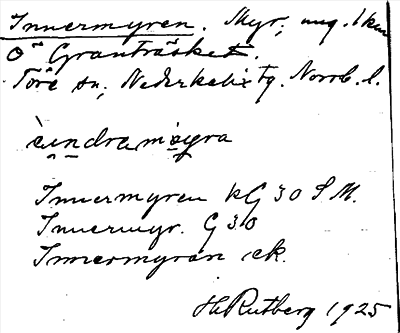 Innermyren. Myr, ung. 1 km
O Granträsket.
Töre sn, Nederkalix tg. Norrb. l.
Innermyren kG 30 S.M.
Innermyr. G 30
Innermyran ek.
H. Rutberg 1925